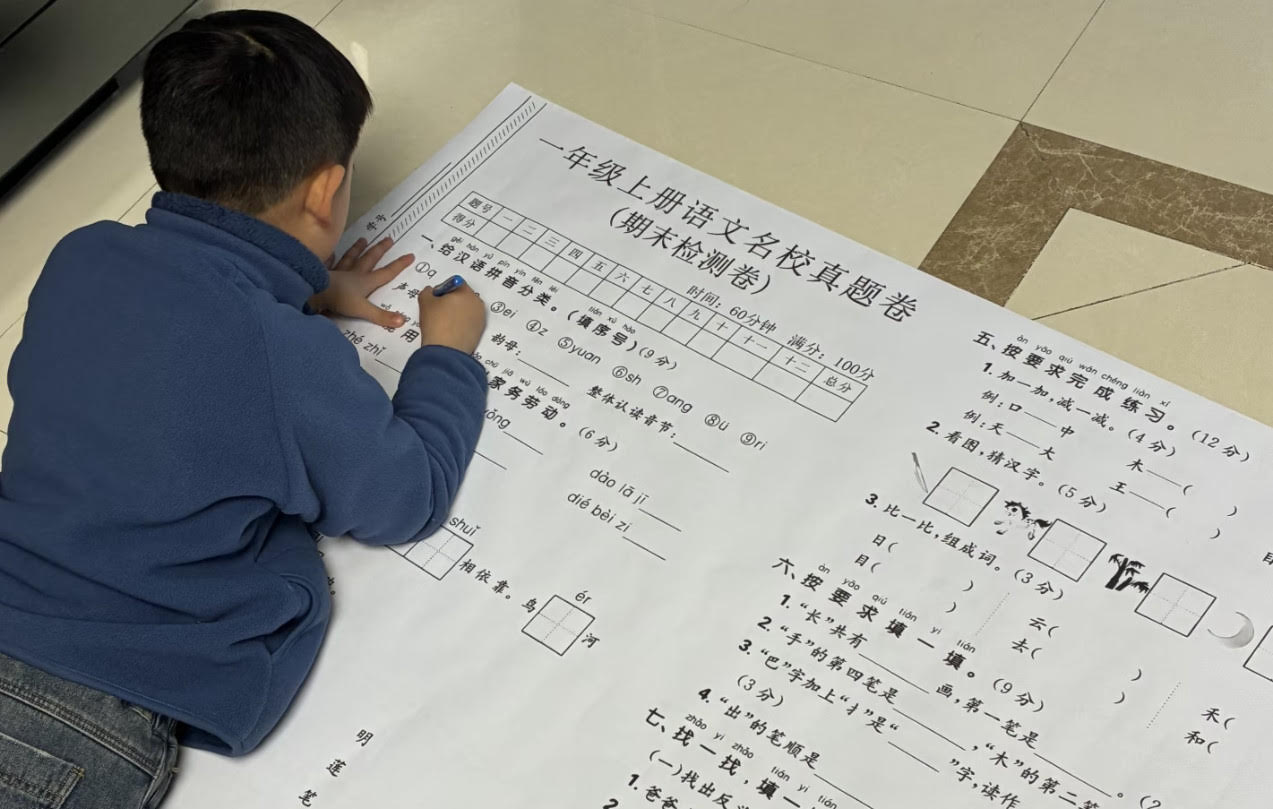 一年级上册语文名校真题卷
(期末检测卷)
时间：60分钟 满分：100分
题号 一 二 三 四 五 六 七 八 九 十 十一 十二 总分
得分
一、给汉语拼音分类。(填序号)(9分)
①q ③ei ④z ⑤yuan ⑥sh ⑦ang ⑧ü ⑨ri
声母 韵母：______ 整体认读音节：______
用 家务劳动。(6分)
zhé zhǐ
dào lā jī
dié bèi zi
shuǐ
相依靠。鸟
ér
河
明
莲
笔
àn yāo qiú wán chéng liàn xí
五、按要求完成练习。(12分)
1.加一加，减一减。(4分)
例：口——中 木——(
例：天——大 王——( )
2.看图，猜汉字。(5分)
3.比一比，组成词。(3分)
日( ) 云( ) 禾(
目( ) 去( ) 和(
àn yāo qiú tián yi tián
六、按要求填一填。(9分)
1.“长”共有______画，第一笔是______。(2
2.“手”的第四笔是______，“木”的第二笔
3.“巴”字加上“扌”是“______”字，读作
(3分)
4.“出”的笔顺是______
zhǎo yi zhǎo tián yi tián
七、找一找，填一
(一)找出反义
1.爸爸
2